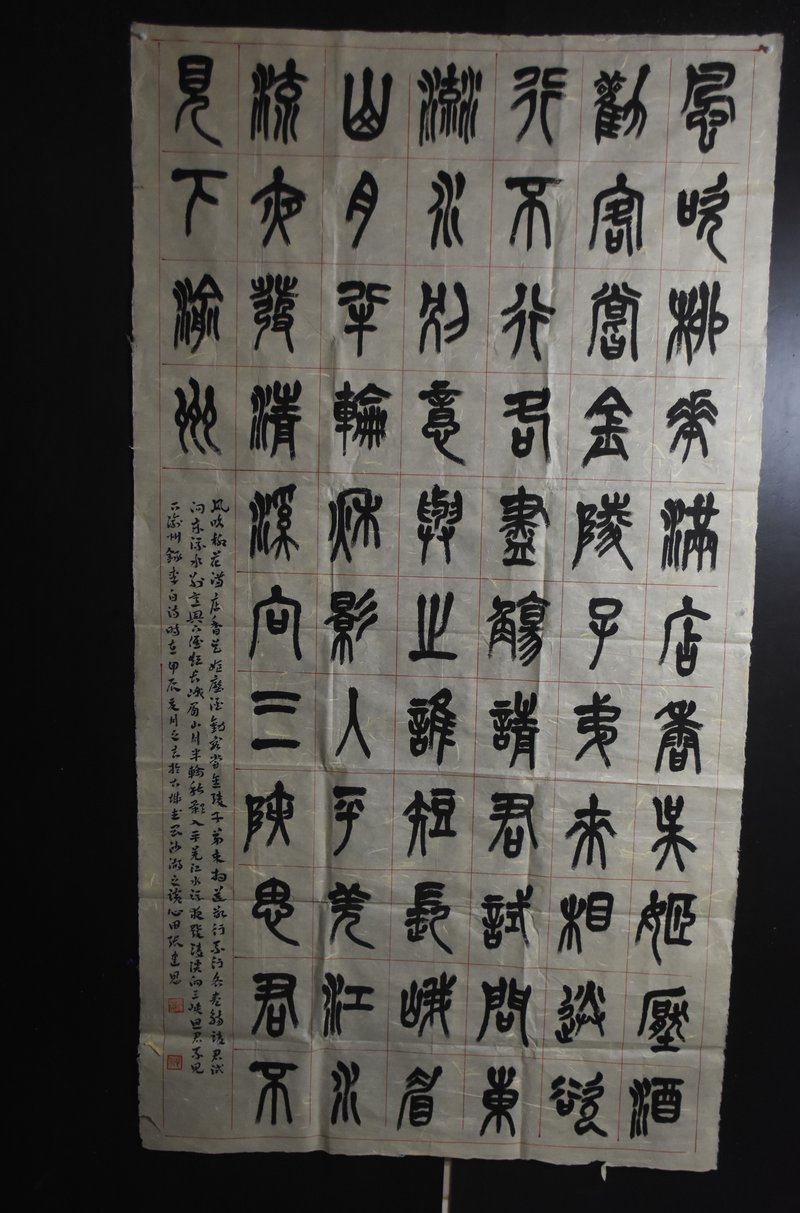 風吹柳花滿店香吳姬壓酒
勸客嘗金陵子弟來相送欲
行不行各盡觴請君試問東
流水別意與之誰短長峨眉
山月半輪秋影入平羌江水
流夜發清溪向三峽思君不
見下渝州
風吹柳花滿店香吳姬壓酒勸客嘗金陵子弟來相送欲行不行各盡觴請君試
問東流水別意與之誰短長峨眉山月半輪秋影入平羌江水流夜發清溪向三峽思君不見
下渝州錄李白詩時在甲辰月之吉於古城沙湖之濱心田張建恩